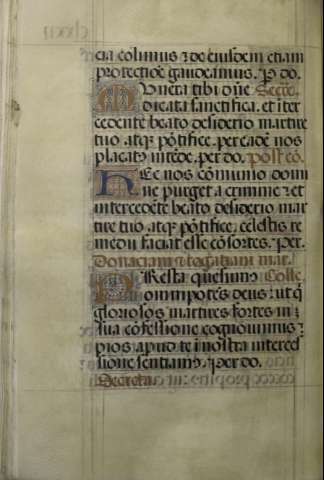 cia colimus ⁊ de eiusdem etiam
protectiōe gaudeamus. P do.
Munera tibi dn̄e Secre.
dicata sanctifica. et īter
cedente beato desiderio martire
tuo atq; pōtifice. per eadē nos
placat' intēde. per do. Post cō.
Hec nos cōmunio domi
ne purget a crimine ⁊ et
intercedēte beato desiderio mar
tire tuo atq; pōtifice. celestis re
medii faciat esse cōsortes. Per.
Donaciani ⁊ rogatiani mar.
Presta quesumus Colle
omnipotens deus: ut q
gloriosos martires fortes in
sua cōfessione cognouimus:
pios apud te ī nostra interces
sione sentiam'. Per do.
Secreta.